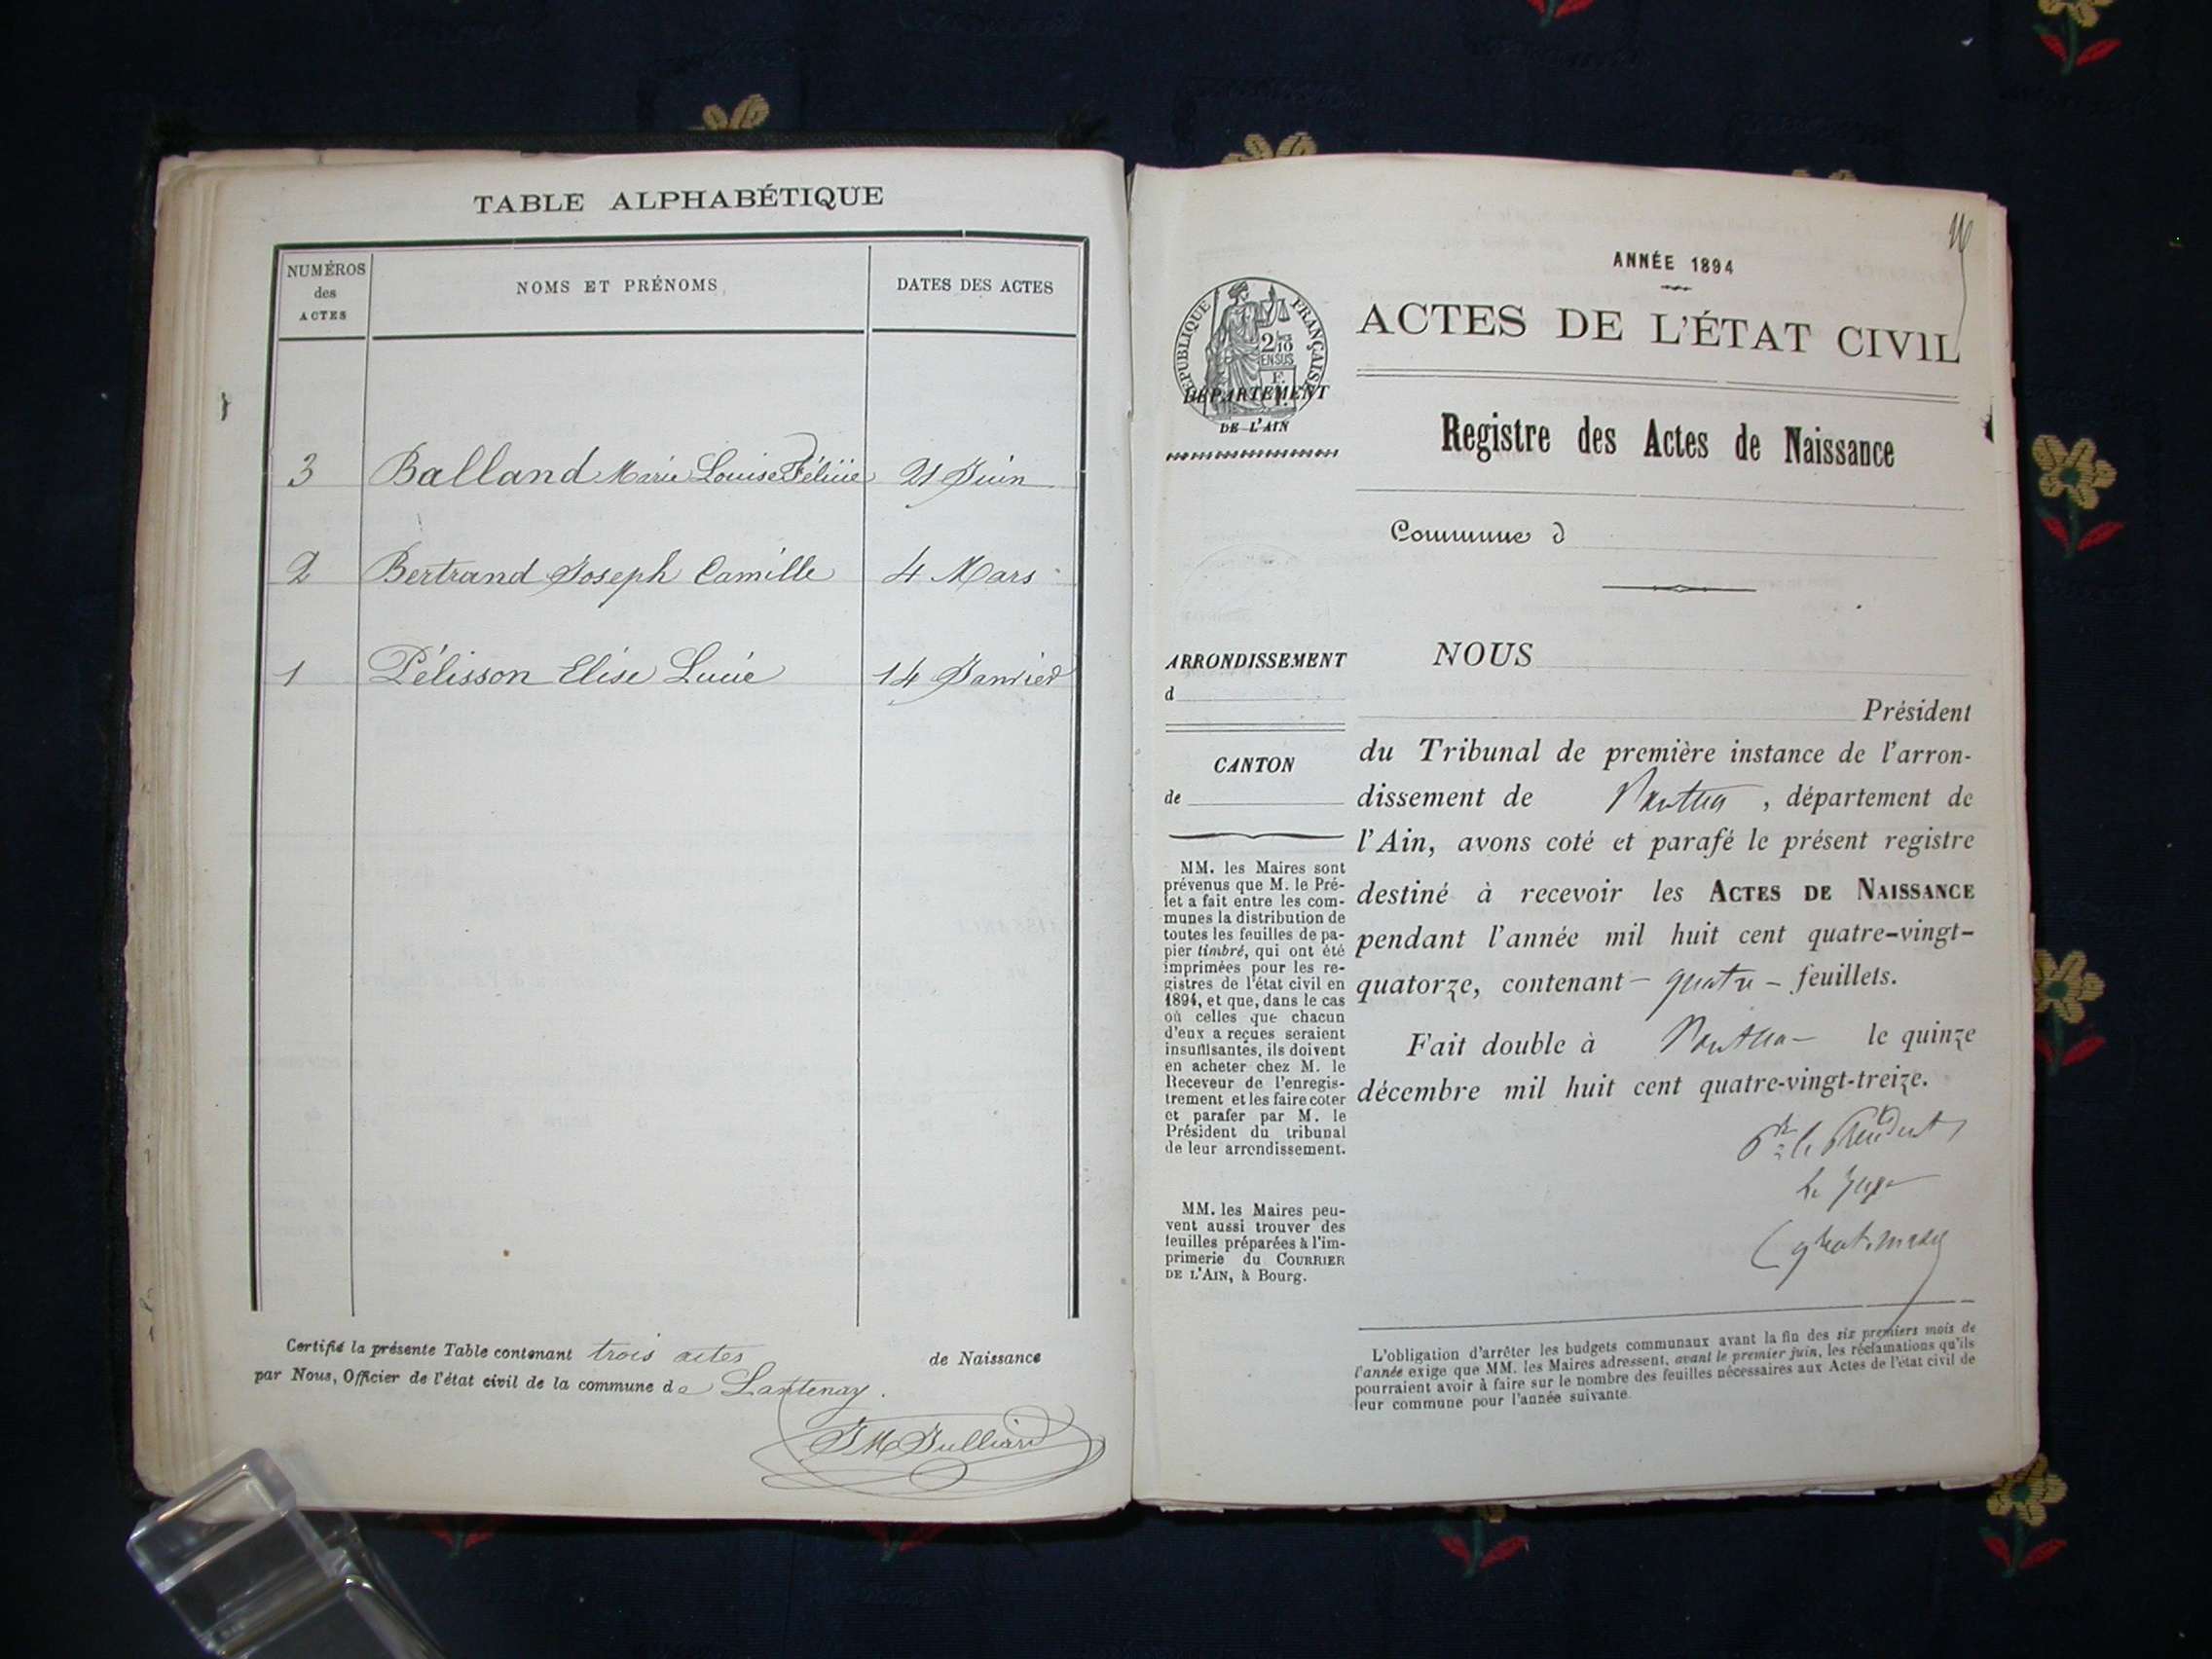 TABLE ALPHABÉTIQUE
NUMÉROS
des
ACTES
NOMS ET PRÉNOMS
DATES DES ACTES
3 Balland Marie Louise Félicie 21 Juin
2 Bertrand Joseph Camille 4 Mars
1 Pélisson Elise Lucie 14 Janvier
Certifié la présente Table contenant trois actes de Naissance
par Nous, Officier de l'état civil de la commune de Lantenay.
JM Julliard
ANNÉE 1894
ACTES DE L'ÉTAT CIVIL
RÉPUBLIQUE FRANÇAISE
2/10
EN SUS
DÉPARTEMENT
DE L'AIN
Registre des Actes de Naissance
Commune d
ARRONDISSEMENT
d
CANTON
de
MM. les Maires sont
prévenus que M. le Pré-
fet a fait entre les com-
munes la distribution de
toutes les feuilles de pa-
pier timbré, qui ont été
imprimées pour les re-
gistres de l'état civil en
1894, et que, dans le cas
où celles que chacun
d'eux a reçues seraient
insuffisantes, ils doivent
en acheter chez M. le
Receveur de l'enregis-
trement et les faire coter
et parafer par M. le
Président du tribunal
de leur arrondissement.
MM. les Maires peu-
vent aussi trouver des
feuilles préparées à l'im-
primerie du COURRIER
DE L'AIN, à Bourg.
NOUS
Président
du Tribunal de première instance de l'arron-
dissement de Nantua, département de
l'Ain, avons coté et parafé le présent registre
destiné à recevoir les ACTES DE NAISSANCE
pendant l'année mil huit cent quatre-vingt-
quatorze, contenant - quatre - feuillets.
Fait double à Nantua - le quinze
décembre mil huit cent quatre-vingt-treize.
Pr le Président
Le Juge
L'obligation d'arrêter les budgets communaux avant la fin des six premiers mois de
l'année exige que MM. les Maires adressent, avant le premier juin, les réclamations qu'ils
pourraient avoir à faire sur le nombre des feuilles nécessaires aux Actes de l'état civil de
leur commune pour l'année suivante.